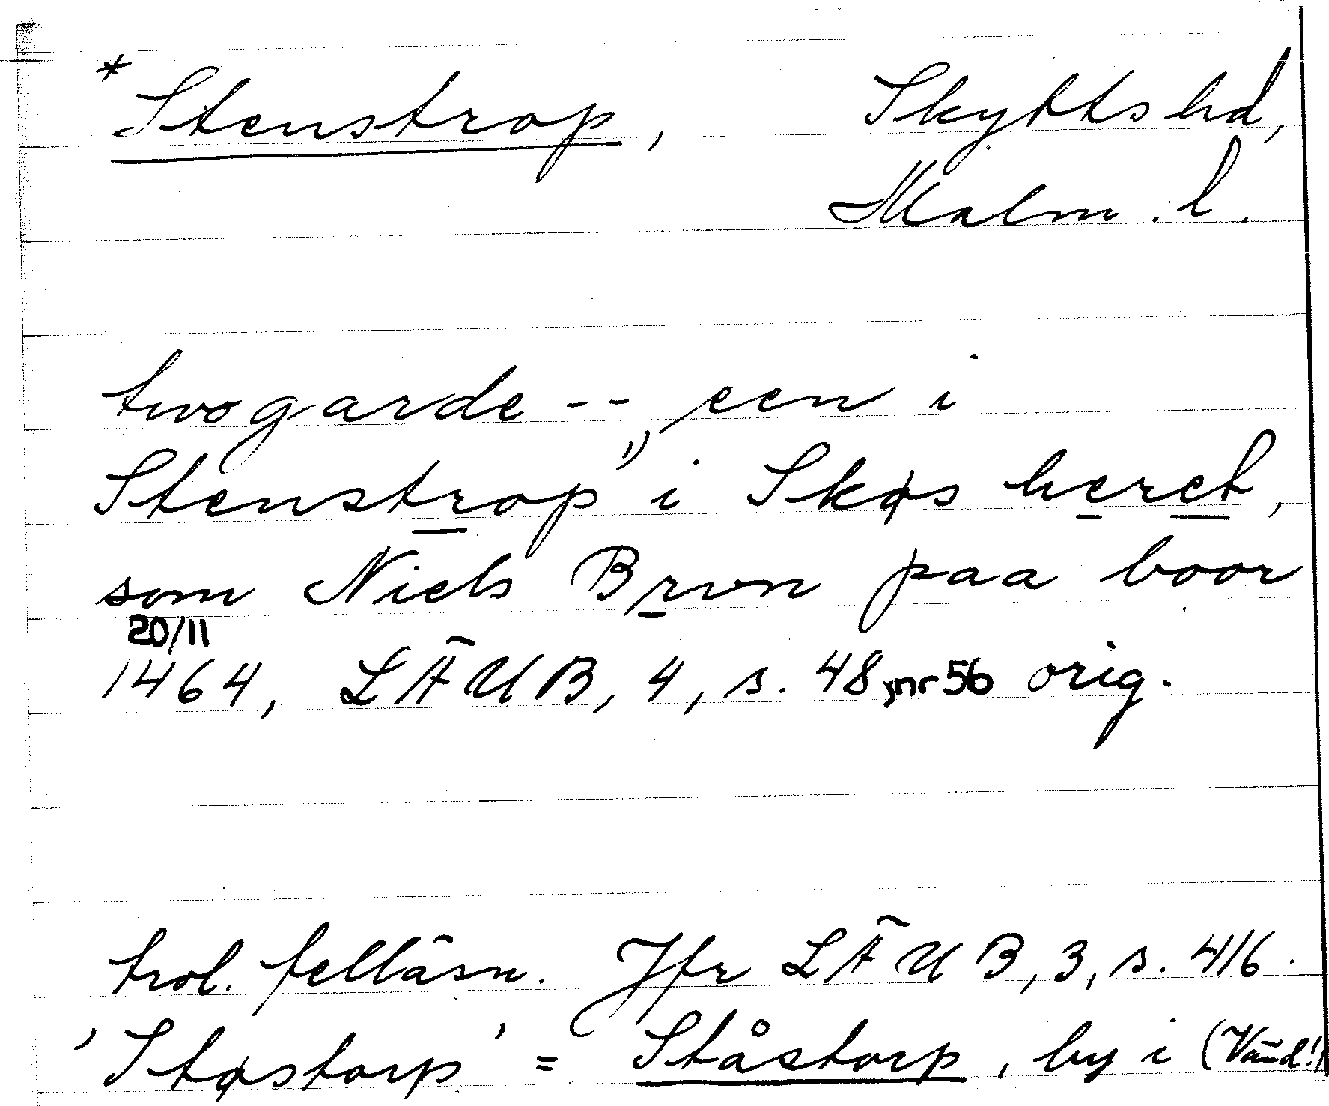 * Stenstrop, Skytts hd,
Malm. l.
two garde -- „ een i
Stenstrop i Skøs heret,
som Niels Brwn paa boor
20/11
1464, LÄUB, 4, s. 48, nr 56 orig.
trol. felläsn. Jfr LÄUB, 3, s. 416.
'Støstorp' = Ståstorp, by i (Vänd!)